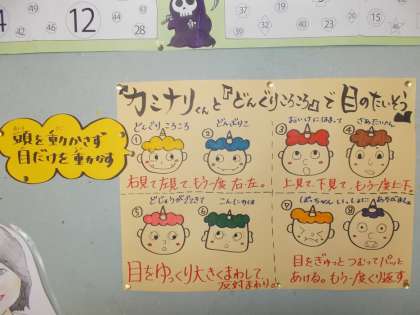 12
49
28
46
42
39
44
11
頭を動かさず
目だけを動かす
『カミナリくんと『どんぐりころころ』で目のたいそう』
① どんぐり ころころ
② どんぶりこ
③ おいけにはまって
④ さあたいへん
右見て左見て、もう一度 右・左。
上見て、下見て、もう一度上下。
⑤ どじょうがでてきて
⑥ こんにちは
⑦ ぼっちゃん
⑧ いっしょに あそびましょ
目をゆっくり大きくまわして、
反対まわり。
目をぎゅっとつむってパッと
あける。もう一度くり返す。